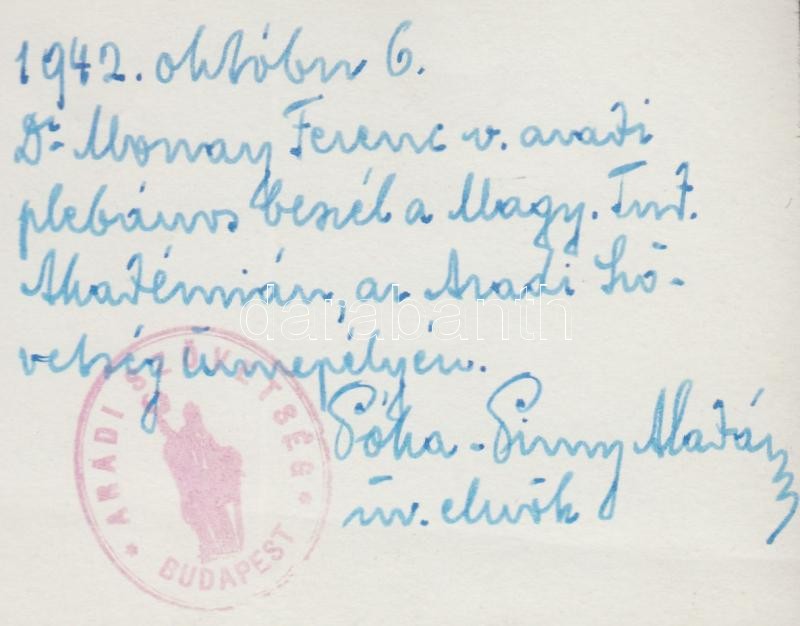 1942. október 6.
Dr. Monay Ferenc v. aradi
plebános beszél a Magy. Tud.
Akadémián, az Aradi Szö-
vetség ünnepélyén.
Póka-Pivny Aladár
üv. elnök
ARADI SZÖVETSÉG
* BUDAPEST *
darabanth